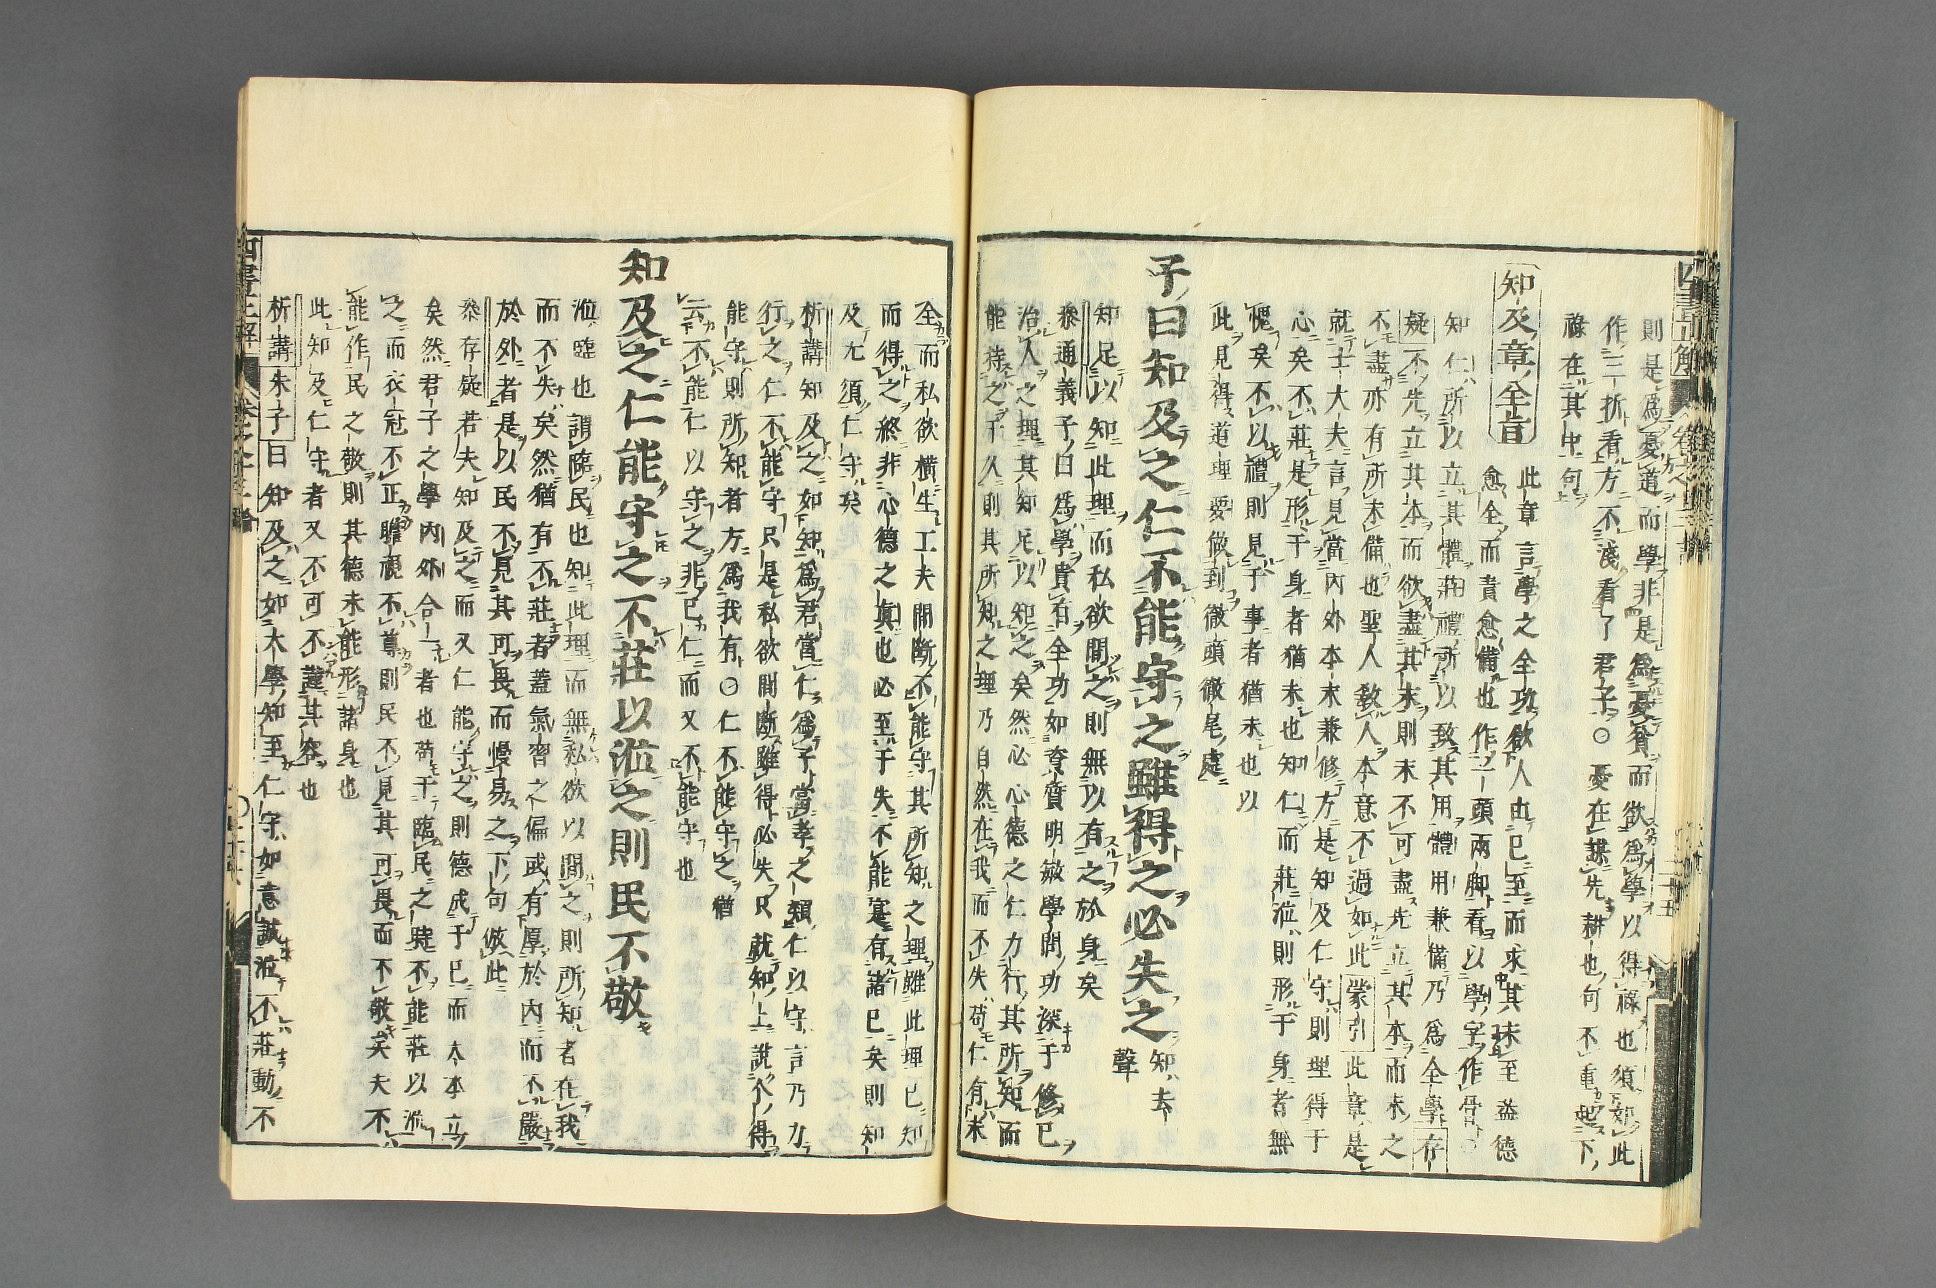 則是爲憂道而學非是爲憂貧而欲爲學以得祿也須知此
作三折看方不淺看了君子○憂在謀先耕也句不重駆下
祿在其中句
知及章全旨
此章言學之全功欲人由已至而求其未至蓋德
愈全而責愈備也作一頭兩脚看以學字作骨○
知仁所以立其體莊禮所以致其用體用兼備乃爲全學存
疑不先立其本而欲盡其末則末不可盡先立其本而末之
不盡亦有所未備也聖人教人本意不過如此蒙引此章是
就士大夫言見當內外本末兼修方是知及仁守則理得于
心矣不莊是形于身者猶未也知仁而莊涖則形于身者無
愧矣不以禮則見于事者猶未也以
此見得道理要做到徹頭徹尾處
子曰知及之仁不能守之雖得之必失之
知去
聲
知足以知此理而私欲間之則無以有之於身矣
叅通義子曰爲學貴有全功如資質明敏學問功深于修已
治人之理其知足以知之矣然必心德之仁力行其所知而
能持之于久則其所知之理乃自然在我而不失苟仁有未
全而私欲橫生工夫間斷不能守其所知之理雖此理已知
而得之終非心德之眞也必至于失不能寔有諸已矣則知
及尤須仁守矣
析講知及之如知爲君當仁爲子當孝之類仁以守言乃力
行之仁不能守只是私欲間斷雖得必失只就知上說不得
能守則所知者方爲我有○仁不能守之猶
云不能仁以守之非已仁而又不能守也
知及之仁能守之不莊以涖之則民不敬
涖臨也謂臨民也知此理而無私欲以間之則所知者在我
而不失矣然猶有不莊者蓋氣習之偏或有厚於內而不嚴
於外者是以民不見其可畏而慢易之下句倣此
叅存疑若夫知及之而又仁能守之則德成于已而大本立
矣然君子之學內外合一者也苟于臨民之時不能莊以涖
之而衣冠不正瞻視不尊則民不見其可畏而不敬矣夫不
能作民之敬則其德未能形諸身也
此知及仁守者又不可不謹其容也
析講朱子曰知及之如大學知至仁守如意誠涖不莊動不